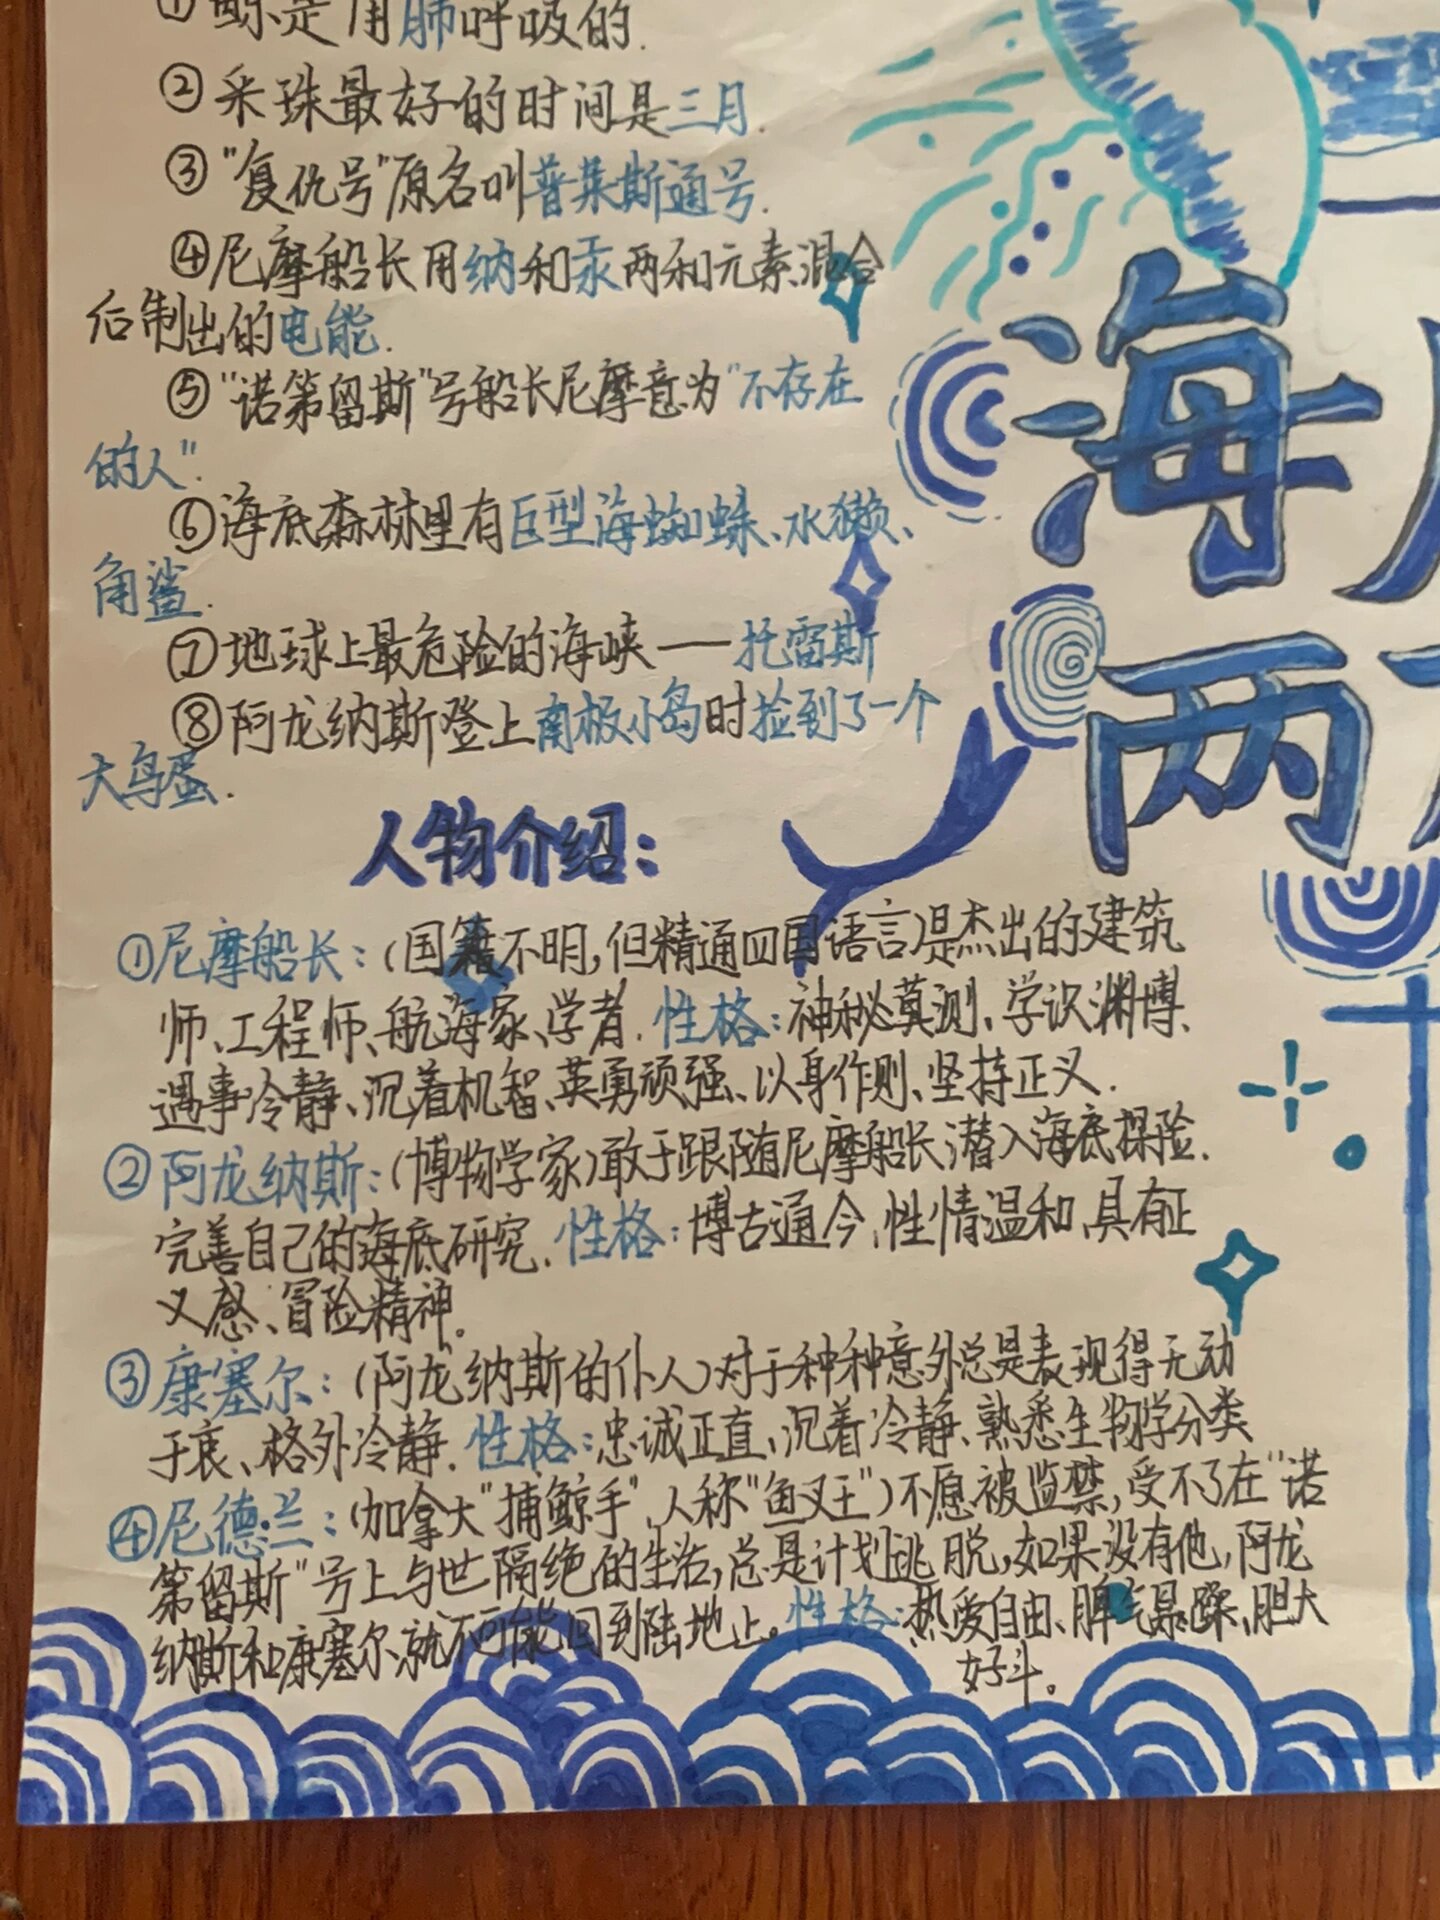 ①鲸是用肺呼吸的.
②采珠最好的时间是三月.
③"复仇号"原名叫普莱斯通号.
④尼摩船长用纳和汞两种元素混合
后制出的电能.
⑤"诺第留斯"号船长尼摩意为"不存在
的人".
⑥海底森林里有巨型海蜘蛛、水獭、
角鲨.
⑦地球上最危险的海峡——托雷斯
⑧阿龙纳斯登上南极小岛时捡到了一个
大鸟蛋.
海
两
人物介绍:
①尼摩船长:(国籍不明,但精通四国语言)是杰出的建筑
师、工程师、航海家、学者.性格:神秘莫测、学识渊博、
遇事冷静、沉着机智、英勇顽强、以身作则、坚持正义.
②阿龙纳斯:(博物学家)敢于跟随尼摩船长潜入海底探险.
完善自己的海底研究.性格:博古通今,性情温和,具有正
义感、冒险精神。
③康塞尔:(阿龙纳斯的仆人)对于种种意外总是表现得无动
于衷、格外冷静.性格:忠诚正直、沉着冷静、熟悉生物学分类
④尼德·兰:(加拿大"捕鲸手",人称"鱼叉王")不愿被监禁,受不了在"诺
第留斯"号上与世隔绝的生活,总是计划逃脱,如果没有他,阿龙
纳斯和康塞尔就不可能回到陆地上。性格:热爱自由、脾气暴躁、胆大
好斗。